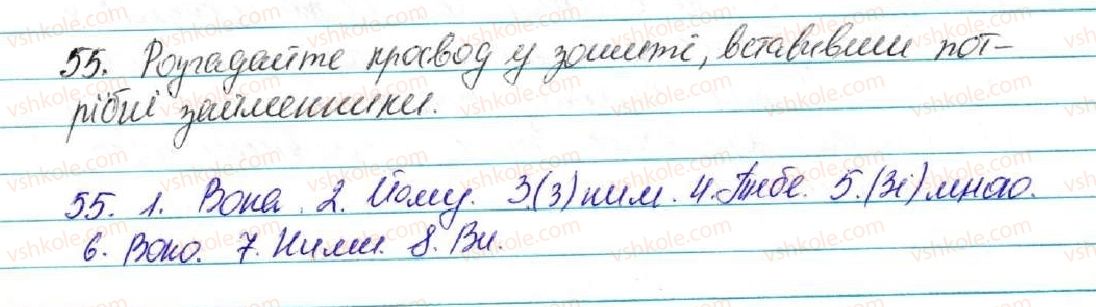 55. Розгадайте красворд у зошиті, вставивши пот-
рібні займенники.
55. 1. Вона. 2. Йому. 3.(З) ним. 4. Тебе. 5.(Зі) мною.
6. Воно. 7. Ними. 8. Ви.